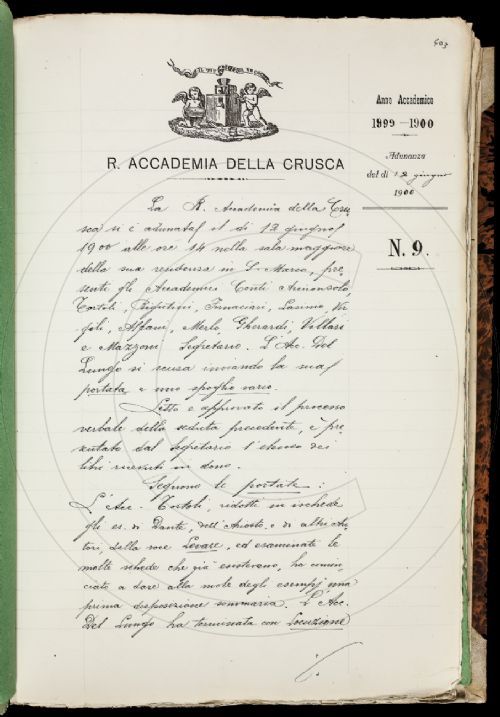 503
IL PIÙ BEL FIOR NE COGLIE
Anno Accademico
1899-1900
R. ACCADEMIA DELLA CRUSCA
Adunanza
del dì 12 giugno
1900
N. 9.
La R. Accademia della Cru-
sca si è adunata il dì 12 giugno
1900 alle ore 14 nella sala maggiore
della sua residenza in S. Marco, pre-
senti gli Accademici Conti Arciconsolo,
Tortoli, Rigutini, Fornaciari, Lasinio, Vir-
gili, Alfani, Merlo, Gherardi, Villari
e Mazzoni Segretario. L'Ac. Del
Lungo si scusa inviando la sua
portata e uno spoglio vario.
Letto e approvato il processo
verbale della seduta precedente, è pre-
sentato dal Segretario l'elenco dei
libri ricevuti in dono.
Seguono le portate:
L'Acc. Tortoli, ridotti in ischede
gli es. di Dante, dell'Ariosto, e di altri Au-
tori, della voce Levare, ed esaminate le
molte schede che già esistevano, ha comin-
ciato a dare alla mole degli esempj una
prima disposizione sommaria. L'Acc.
Del Lungo ha terminata con Locuzione